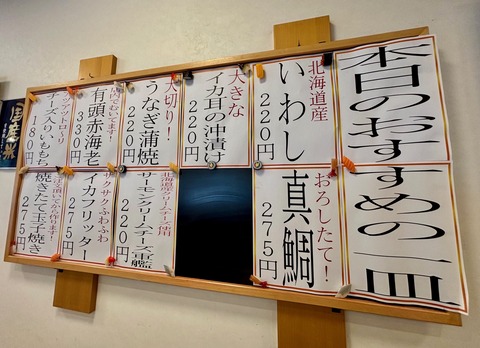 本日のおすすめの一皿
北海道産
いわし
220円
おろしたて!
真鯛
275円
大きな
イカ耳の沖漬け
220円
大切り!
うなぎ蒲焼
220円
北海道クリームチーズ使用
サーモンクリームチーズ軍艦
220円
店内でむいてます!
有頭赤海老
330円
サクサクふわふわ
イカフリッター
275円
アッアットロ〜り
チーズ入りいももち
180円
焼きたて玉子焼き
275円